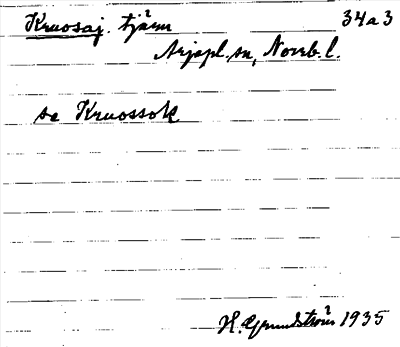 Kruosaj. tjärn 34a3
Arjepl. sn, Norrb. l.
se Kruossok
H. Grundström 1935